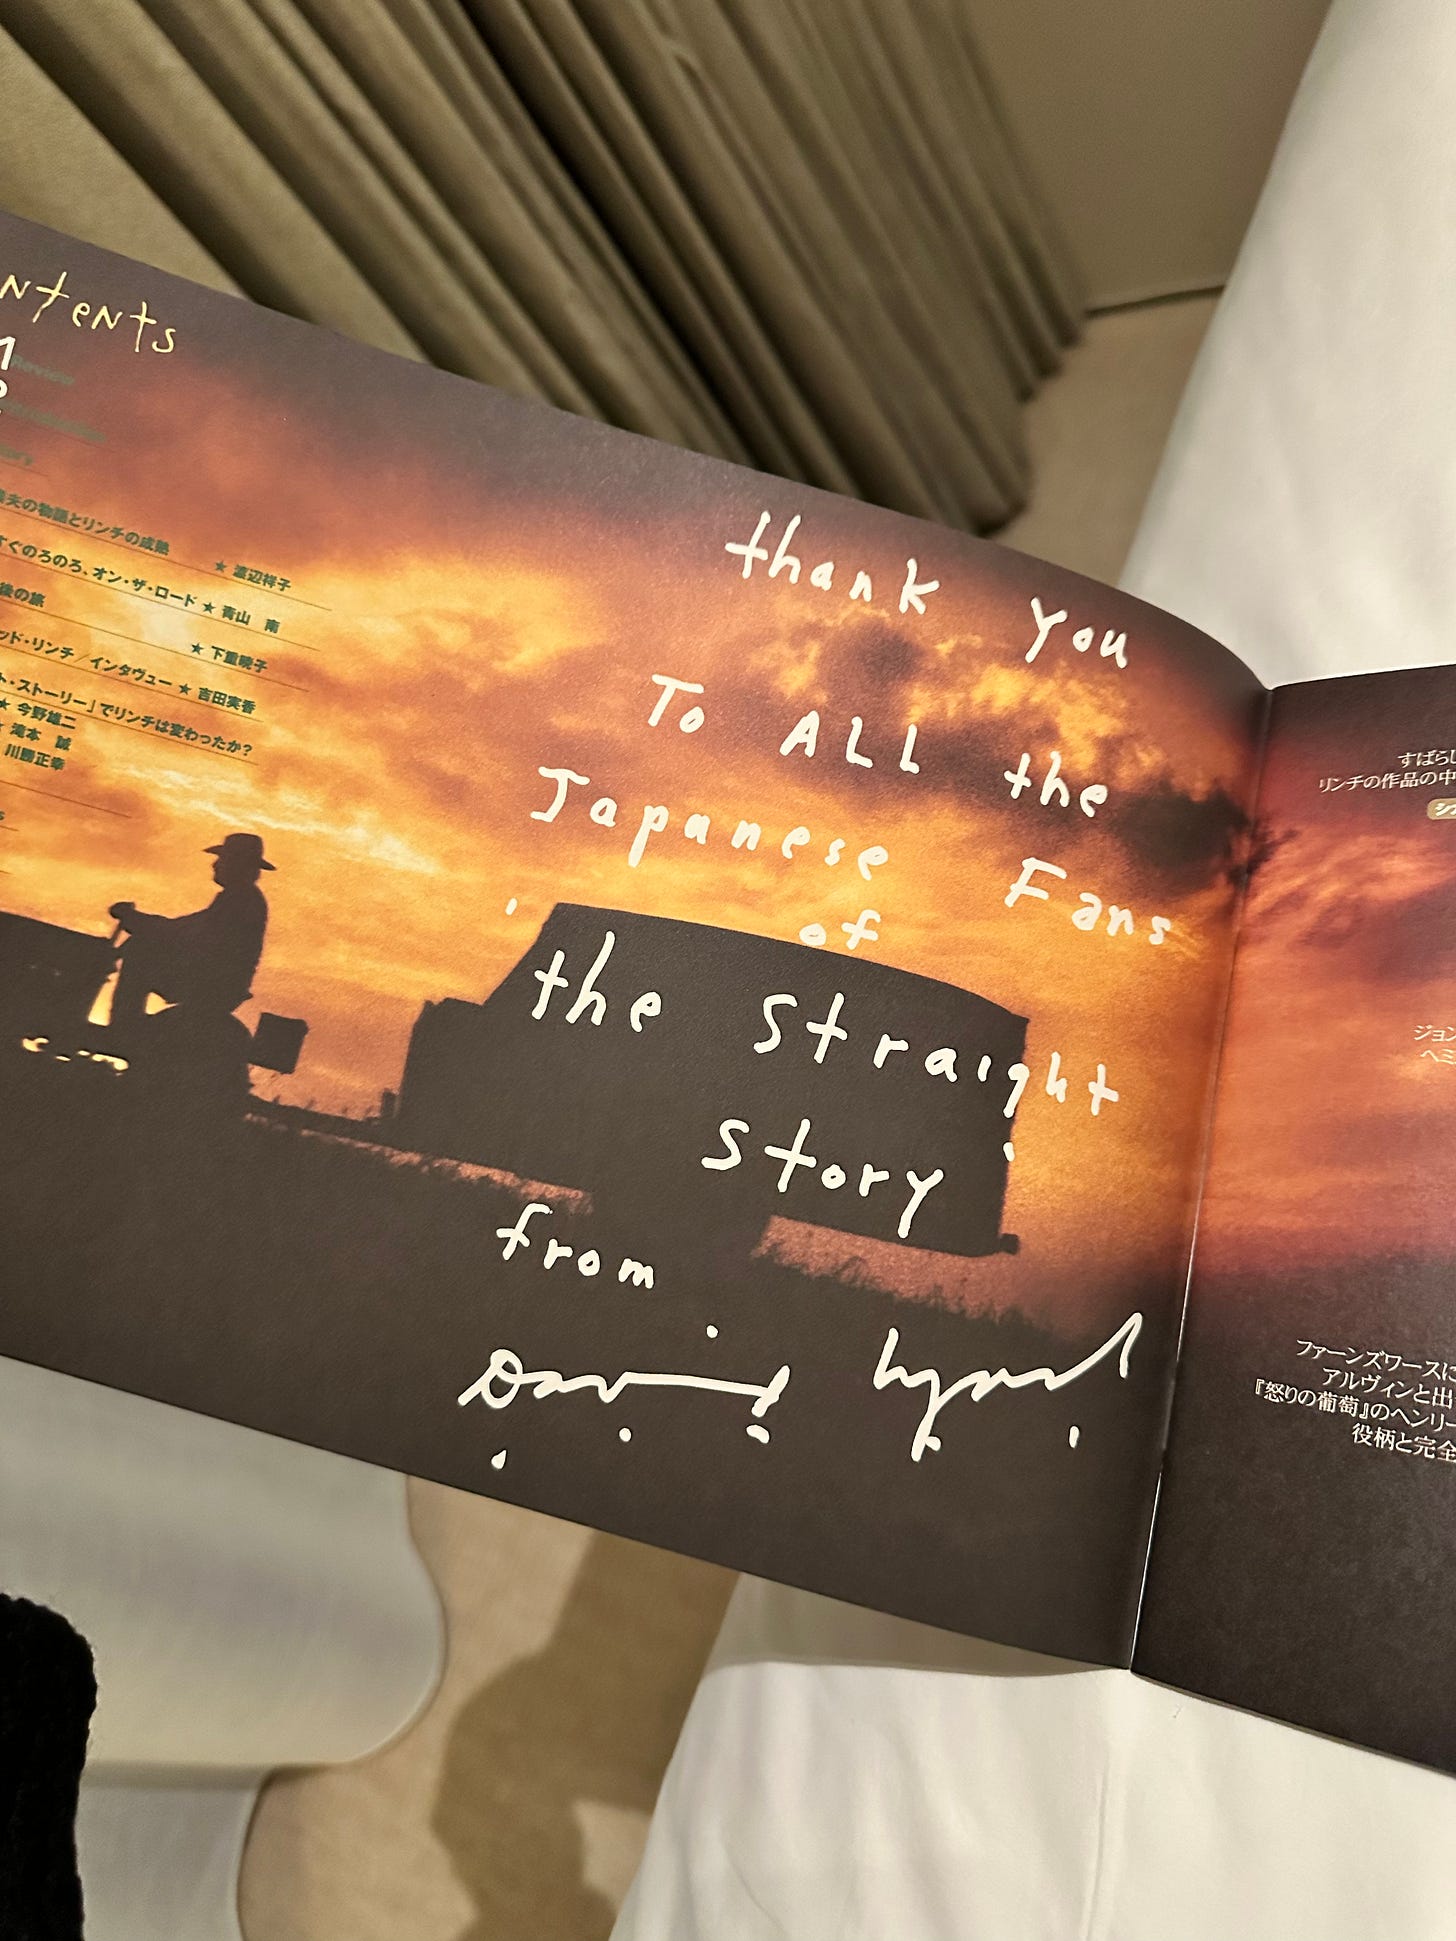 ntents
Review
夫の物語とリンチの成熟 ★ 渡辺祥子
すぐのろのろ、オン・ザ・ロード ★ 青山 南
後の旅 ★ 下重暁子
ッド・リンチ／インタヴュー ★ 吉田実香
ト・ストーリー」でリンチは変わったか?
★ 今野雄二
★ 滝本 誠
川勝正幸
thank you
To ALL the
Japanese Fans
of
the Straight
Story
from
David Lynch
すばらし
リンチの作品の中
ジョン
ヘミ
ファーンズワースに
アルヴィンと出
『怒りの葡萄』のヘンリー
役柄と完全